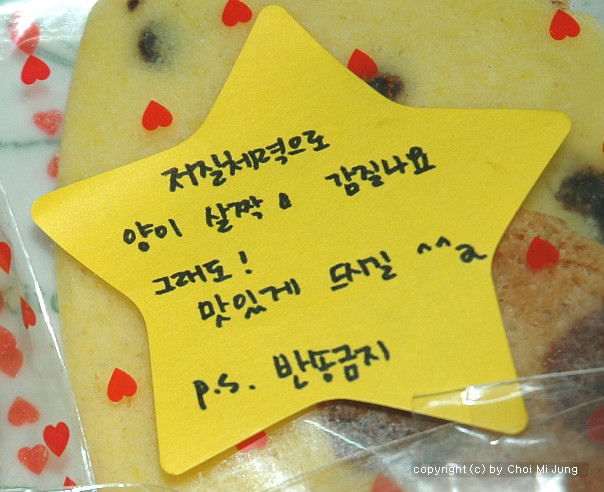 저질체력으로
양이 살짝 감질나요
그래도!
맛있게 드시길 ^^a
p.s. 반송금지
copyright (c) by Choi Mi Jung